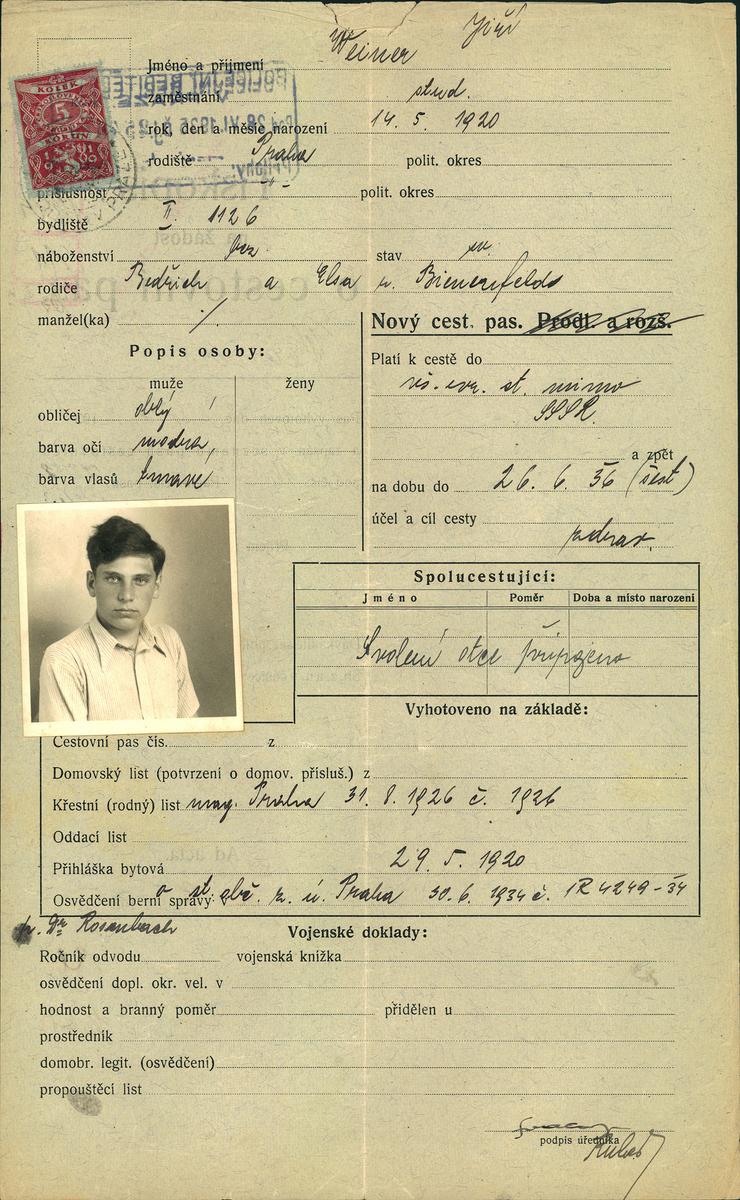 Weiner Jiří
Jméno a příjmení
KOLEK
5
KORUN
zaměstnání stud.
rok, den a měsíc narození 14. 5. 1920
rodiště Praha polit. okres
příslušnost -"- polit. okres
bydliště II. 1126
náboženství bez stav sv.
rodiče Bedřich a Elsa r. Bienenfeld
manžel(ka) ./.
Popis osoby:
muže ženy
obličej oblý
barva očí modrá,
barva vlasů tmavé
Nový cest. pas. Prodl. a rozš.
Platí k cestě do
vš. evr. st. mimo
SSSR.
a zpět
na dobu do 26. 6. 36 (šest)
účel a cíl cesty
zdrav.
Spolucestující:
Jméno Poměr Doba a místo narození
Svolení otce připojeno
Vyhotoveno na základě:
Cestovní pas čís. z
Domovský list (potvrzení o domov. přísluš.) z
Křestní (rodný) list mag. Praha 31. 8. 1926 č. 1926
Oddací list
Přihláška bytová 29. 5. 1920
Osvědčení berní správy o st. obč. z. ú. Praha 30. 6. 1934 č. 1R 4249-34
Dr Rosenbach
Vojenské doklady:
Ročník odvodu vojenská knížka
osvědčení dopl. okr. vel. v
hodnost a branný poměr přidělen u
prostředník
domobr. legit. (osvědčení)
propouštěcí list
podpis úředníka